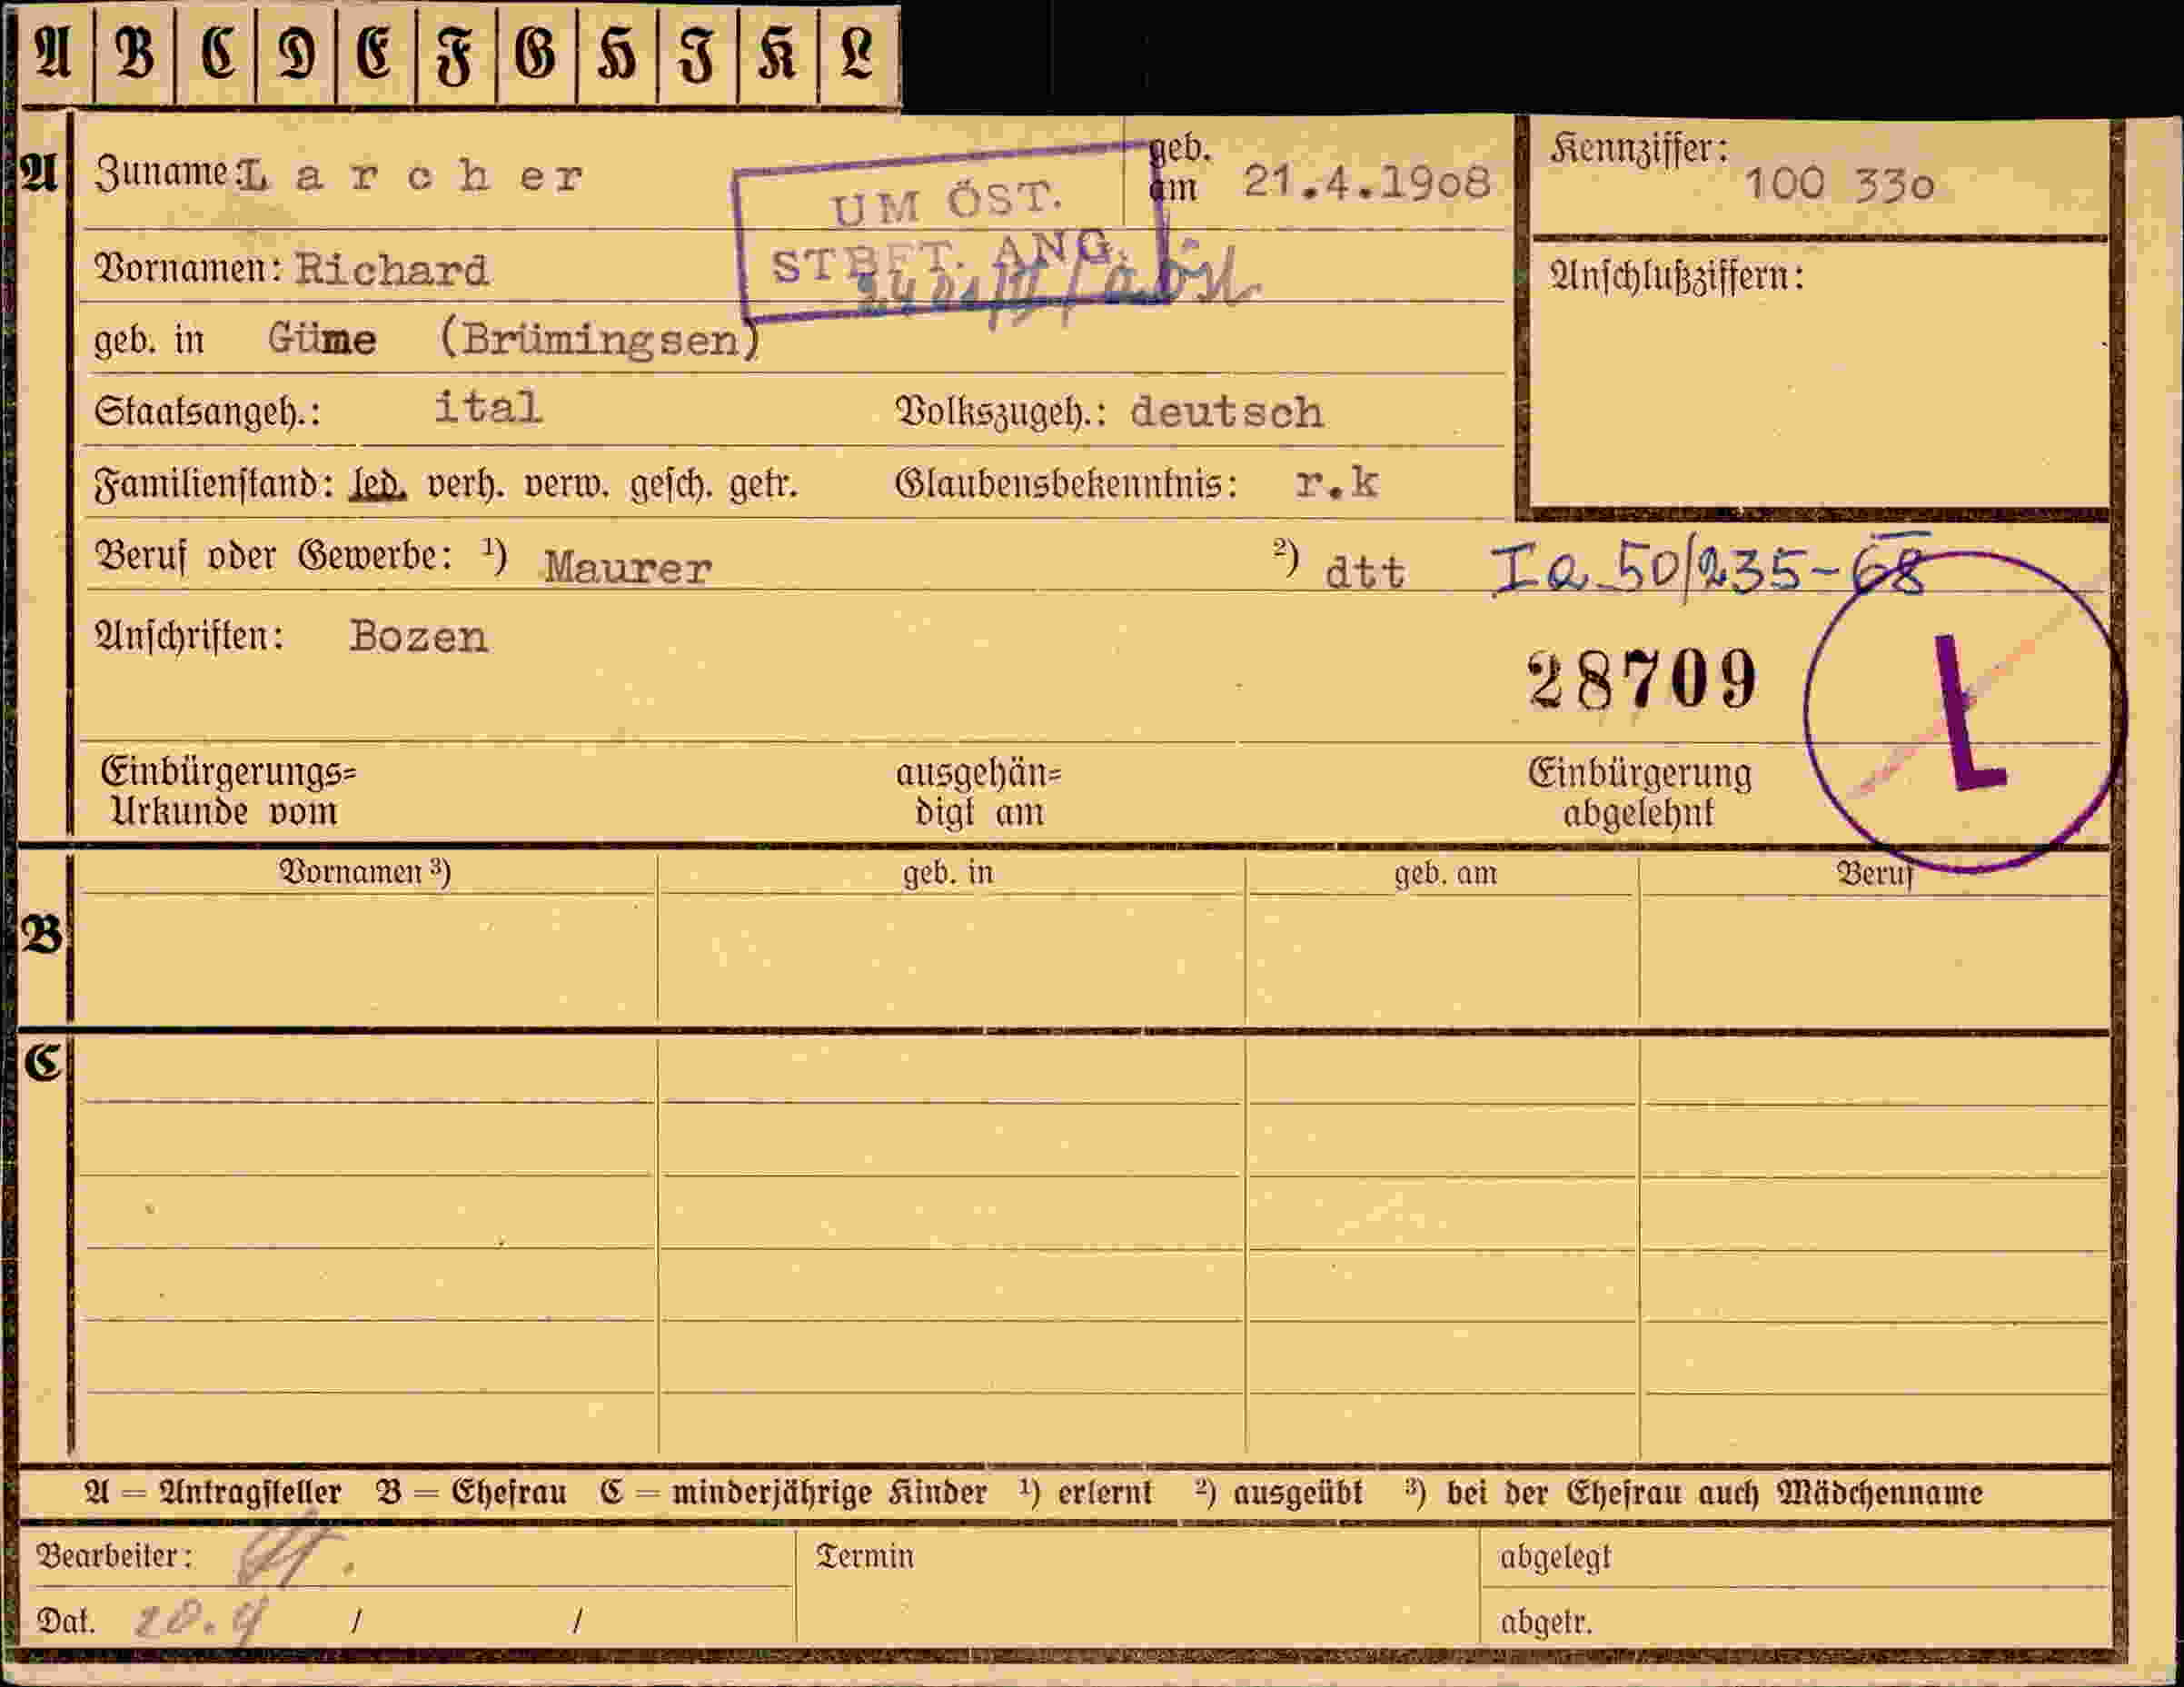 A B C D E F G H I K L
A Zuname: Larcher geb. am 21.4.1908 Kennziffer: 100 330
UM ÖST.
STBFT. ANG.
Vornamen: Richard Anschlußziffern:
geb. in Güme (Brümingsen)
Staatsangeh.: ital Volkszugeh.: deutsch
Familienstand: led. verh. verw. gesch. getr. Glaubensbekenntnis: r.k
Beruf oder Gewerbe: ¹) Maurer ²) dtt Ia 50/235-68
Anschriften: Bozen
28709
L
Einbürgerungs= ausgehän= Einbürgerung
Urkunde vom digt am abgelehnt
Vornamen ³) geb. in geb. am Beruf
B
C
A = Antragsteller B = Ehefrau C = minderjährige Kinder ¹) erlernt ²) ausgeübt ³) bei der Ehefrau auch Mädchenname
Bearbeiter: Termin abgelegt
Dat. 20.9 / / abgetr.